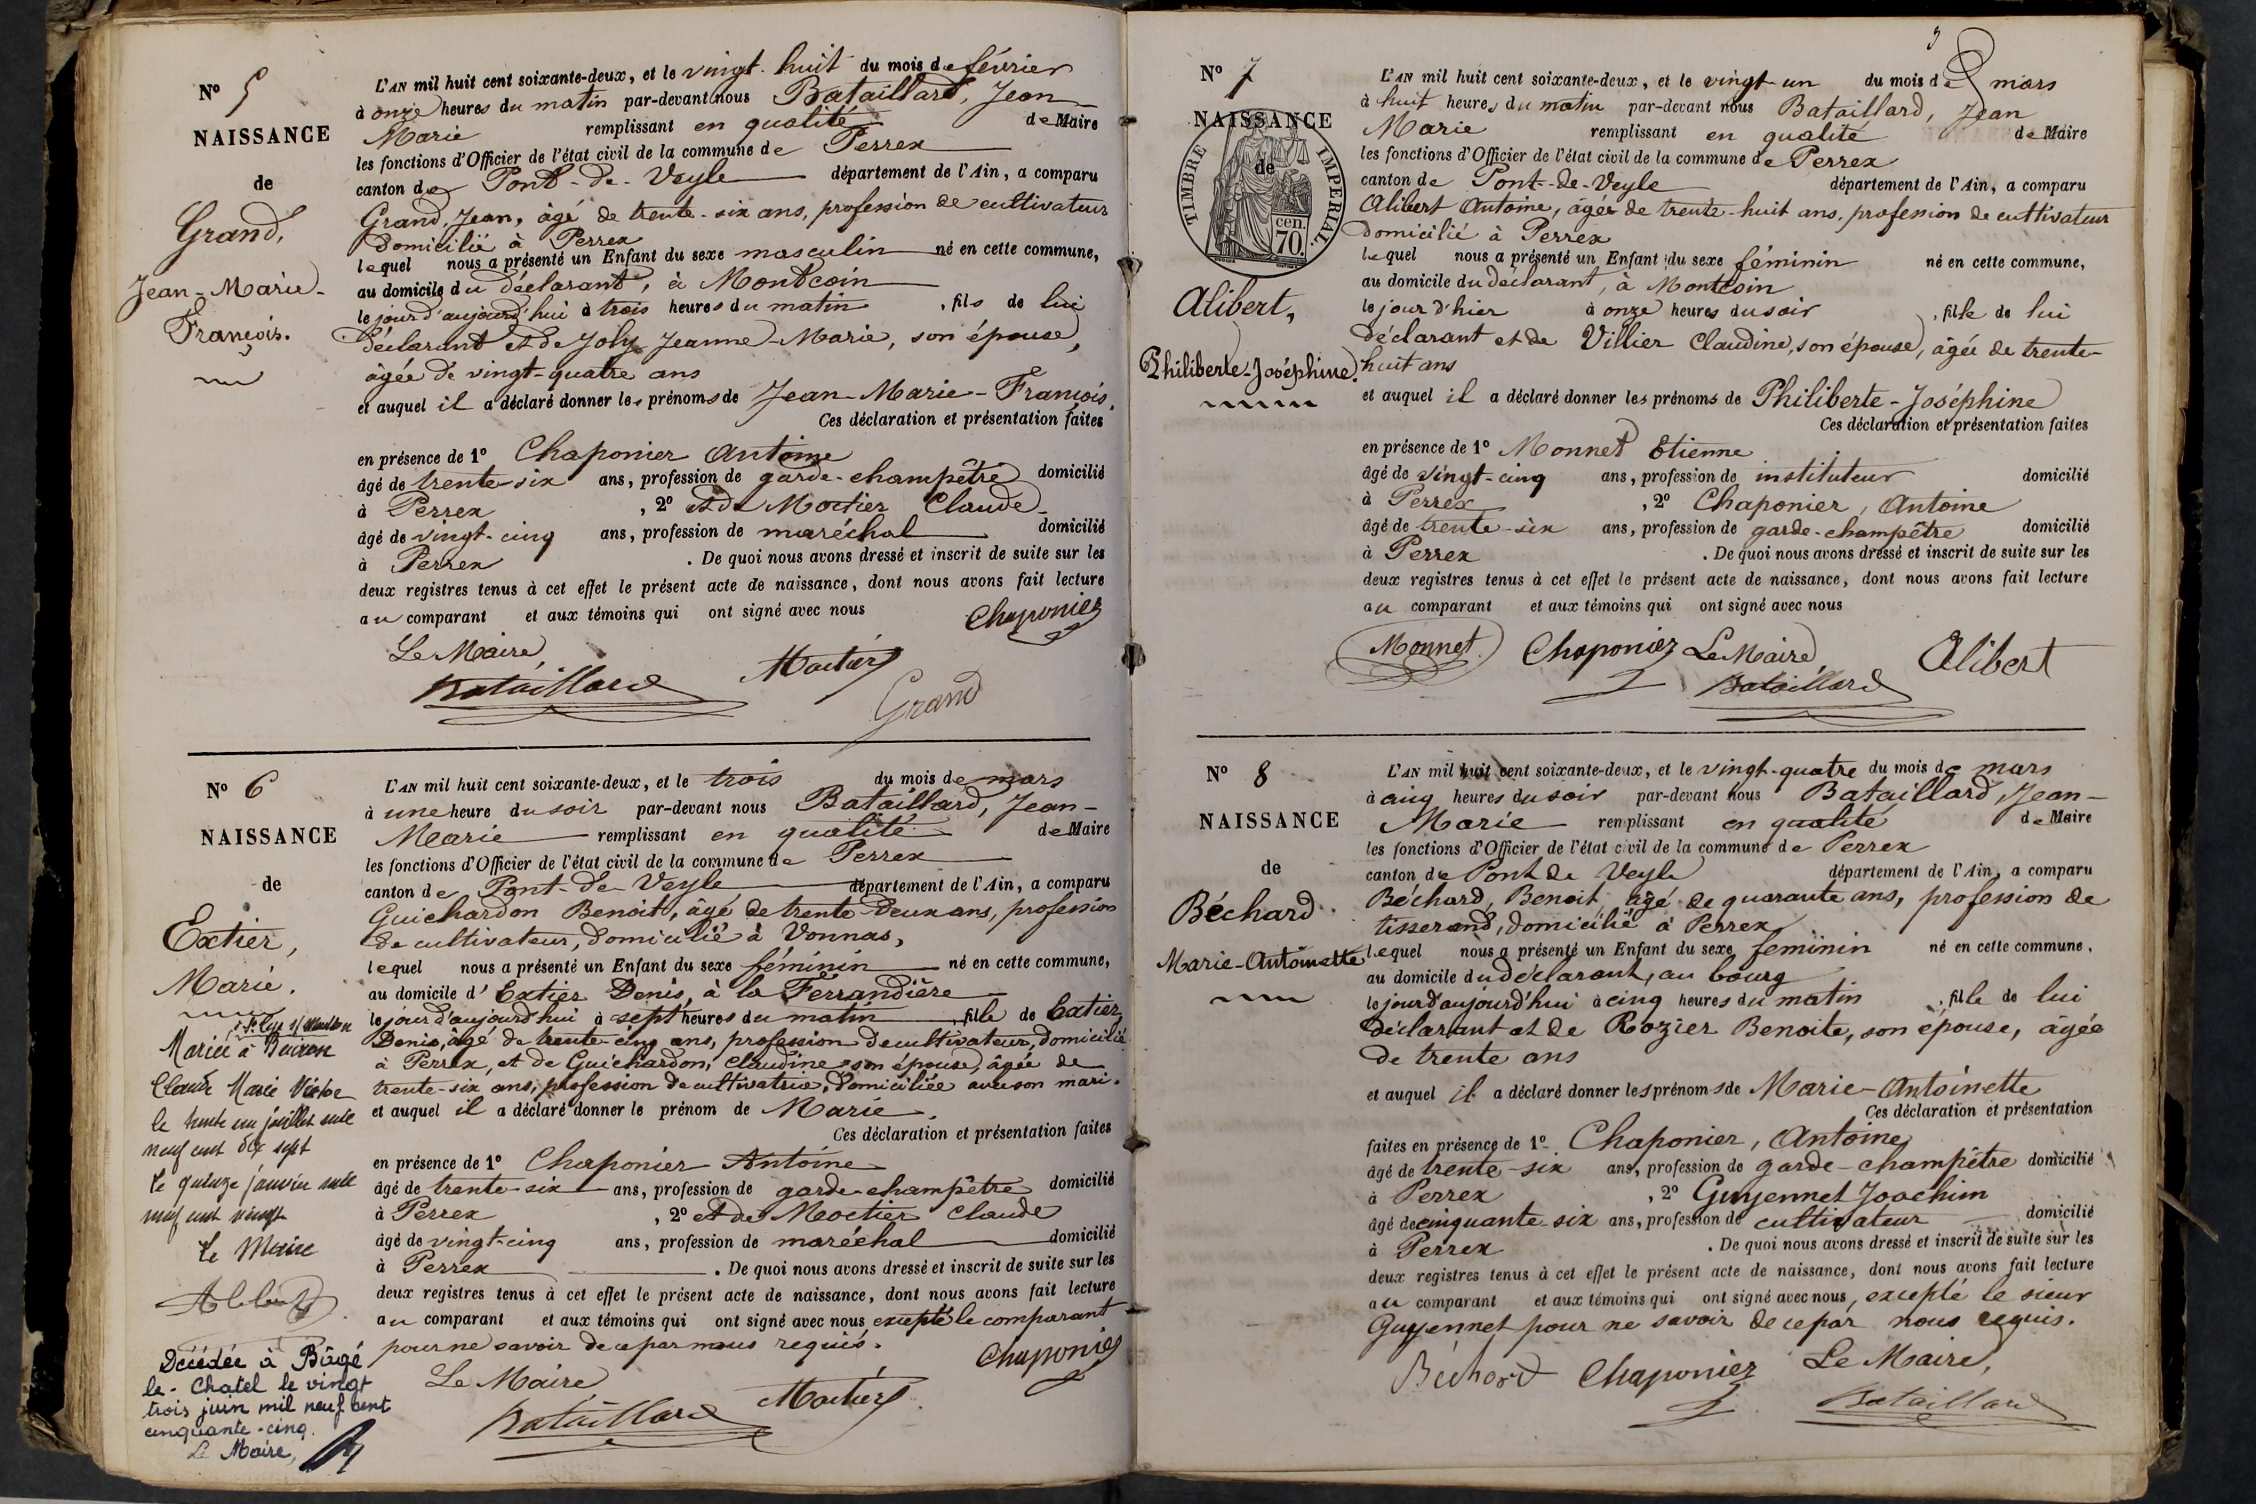 N° 5
NAISSANCE
de
Grand,
Jean-Marie-
François.
L'AN mil huit cent soixante-deux, et le vingt-huit du mois de février
à onze heures du matin par-devant nous Bataillard, Jean
Marie remplissant en qualité de Maire
les fonctions d'Officier de l'état civil de la commune de Perrex
canton de Pont-de-Veyle département de l'Ain, a comparu
Grand, Jean, âgé de trente-six ans, profession de cultivateur
domicilié à Perrex
lequel nous a présenté un Enfant du sexe masculin né en cette commune,
au domicile du déclarant, à Montcoin
le jour d'aujourd'hui à trois heures du matin, fils de lui
déclarant et de Joly Jeanne-Marie, son épouse,
âgée de vingt-quatre ans
et auquel il a déclaré donner les prénoms de Jean-Marie-François.
Ces déclaration et présentation faites
en présence de 1° Chaponier Antoine
âgé de trente-six ans, profession de garde-champêtre domicilié
à Perrex, 2° et de Moctier Claude
âgé de vingt-cinq ans, profession de maréchal domicilié
à Perrex. De quoi nous avons dressé et inscrit de suite sur les
deux registres tenus à cet effet le présent acte de naissance, dont nous avons fait lecture
au comparant et aux témoins qui ont signé avec nous
Chaponier
Le Maire,
Bataillard Moctier
Grand
N° 6
NAISSANCE
de
Extier,
Marie.
Mariée à
Claude Marie
le trente un juillet mille
neuf cent dix sept
Le quinze janvier mille
neuf cent vingt
Le Maire
Décédée à Bâgé
le-Chatel le vingt
trois juin mil neuf cent
cinquante-cinq.
Le Maire,
L'AN mil huit cent soixante-deux, et le trois du mois de mars
à une heure du soir par-devant nous Bataillard, Jean-
Marie remplissant en qualité de Maire
les fonctions d'Officier de l'état civil de la commune de Perrex
canton de Pont-de-Veyle département de l'Ain, a comparu
Guichardon Benoit, âgé de trente-deux ans, profession
de cultivateur, domicilié à Vonnas,
lequel nous a présenté un Enfant du sexe féminin né en cette commune,
au domicile d'Extier Denis, à la Ferrandière
le jour d'aujourd'hui à sept heures du matin, fille de Extier
Denis, âgé de trente-cinq ans, profession de cultivateur, domicilié
à Perrex, et de Guichardon, Claudine son épouse, âgée de
trente-six ans, profession de cultivatrice, domiciliée avec son mari.
et auquel il a déclaré donner le prénom de Marie.
Ces déclaration et présentation faites
en présence de 1° Chaponier Antoine
âgé de trente-six ans, profession de garde-champêtre domicilié
à Perrex, 2° et de Moctier Claude
âgé de vingt-cinq ans, profession de maréchal domicilié
à Perrex. De quoi nous avons dressé et inscrit de suite sur les
deux registres tenus à cet effet le présent acte de naissance, dont nous avons fait lecture
au comparant et aux témoins qui ont signé avec nous excepté le comparant
pour ne savoir de ce par nous requis.
Chaponier
Le Maire
Bataillard Moctier
3
N° 7
NAISSANCE
de
TIMBRE IMPERIAL.
70. cen.
Alibert,
Philiberte-Joséphine.
L'AN mil huit cent soixante-deux, et le vingt-un du mois de mars
à huit heures du matin par-devant nous Bataillard, Jean
Marie remplissant en qualité de Maire
les fonctions d'Officier de l'état civil de la commune de Perrex
canton de Pont-de-Veyle département de l'Ain, a comparu
Alibert Antoine, âgée de trente-huit ans, profession de cultivateur
domicilié à Perrex
lequel nous a présenté un Enfant du sexe féminin né en cette commune,
au domicile du déclarant, à Montcoin
le jour d'hier à onze heures du soir, fille de lui
déclarant et de Villier Claudine, son épouse, âgée de trente-
huit ans
et auquel il a déclaré donner les prénoms de Philiberte-Joséphine
Ces déclaration et présentation faites
en présence de 1° Monnet Etienne
âgé de vingt-cinq ans, profession de instituteur domicilié
à Perrex, 2° Chaponier, Antoine
âgé de trente-six ans, profession de garde-champêtre domicilié
à Perrex. De quoi nous avons dressé et inscrit de suite sur les
deux registres tenus à cet effet le présent acte de naissance, dont nous avons fait lecture
au comparant et aux témoins qui ont signé avec nous
Monnet. Chaponier Le Maire, Alibert
Bataillard
N° 8
NAISSANCE
de
Béchard
Marie-Antoinette
L'AN mil huit cent soixante-deux, et le vingt-quatre du mois de mars
à cinq heures du soir par-devant nous Bataillard, Jean-
Marie remplissant en qualité de Maire
les fonctions d'Officier de l'état civil de la commune de Perrex
canton de Pont de Veyle département de l'Ain, a comparu
Béchard, Benoit, âgé de quarante ans, profession de
tisserand, domicilié à Perrex
lequel nous a présenté un Enfant du sexe féminin né en cette commune,
au domicile du déclarant, au bourg
le jour d'aujourd'hui à cinq heures du matin, fille de lui
déclarant et de Rozier Benoite, son épouse, âgée
de trente ans
et auquel il a déclaré donner les prénoms de Marie-Antoinette
Ces déclaration et présentation
faites en présence de 1° Chaponier, Antoine
âgé de trente-six ans, profession de garde-champêtre domicilié
à Perrex, 2° Guyennet Joachim
âgé de cinquante-six ans, profession de cultivateur domicilié
à Perrex. De quoi nous avons dressé et inscrit de suite sur les
deux registres tenus à cet effet le présent acte de naissance, dont nous avons fait lecture
au comparant et aux témoins qui ont signé avec nous, excepté le sieur
Guyennet pour ne savoir de ce par nous requis.
Béchard Chaponier Le Maire,
Bataillard